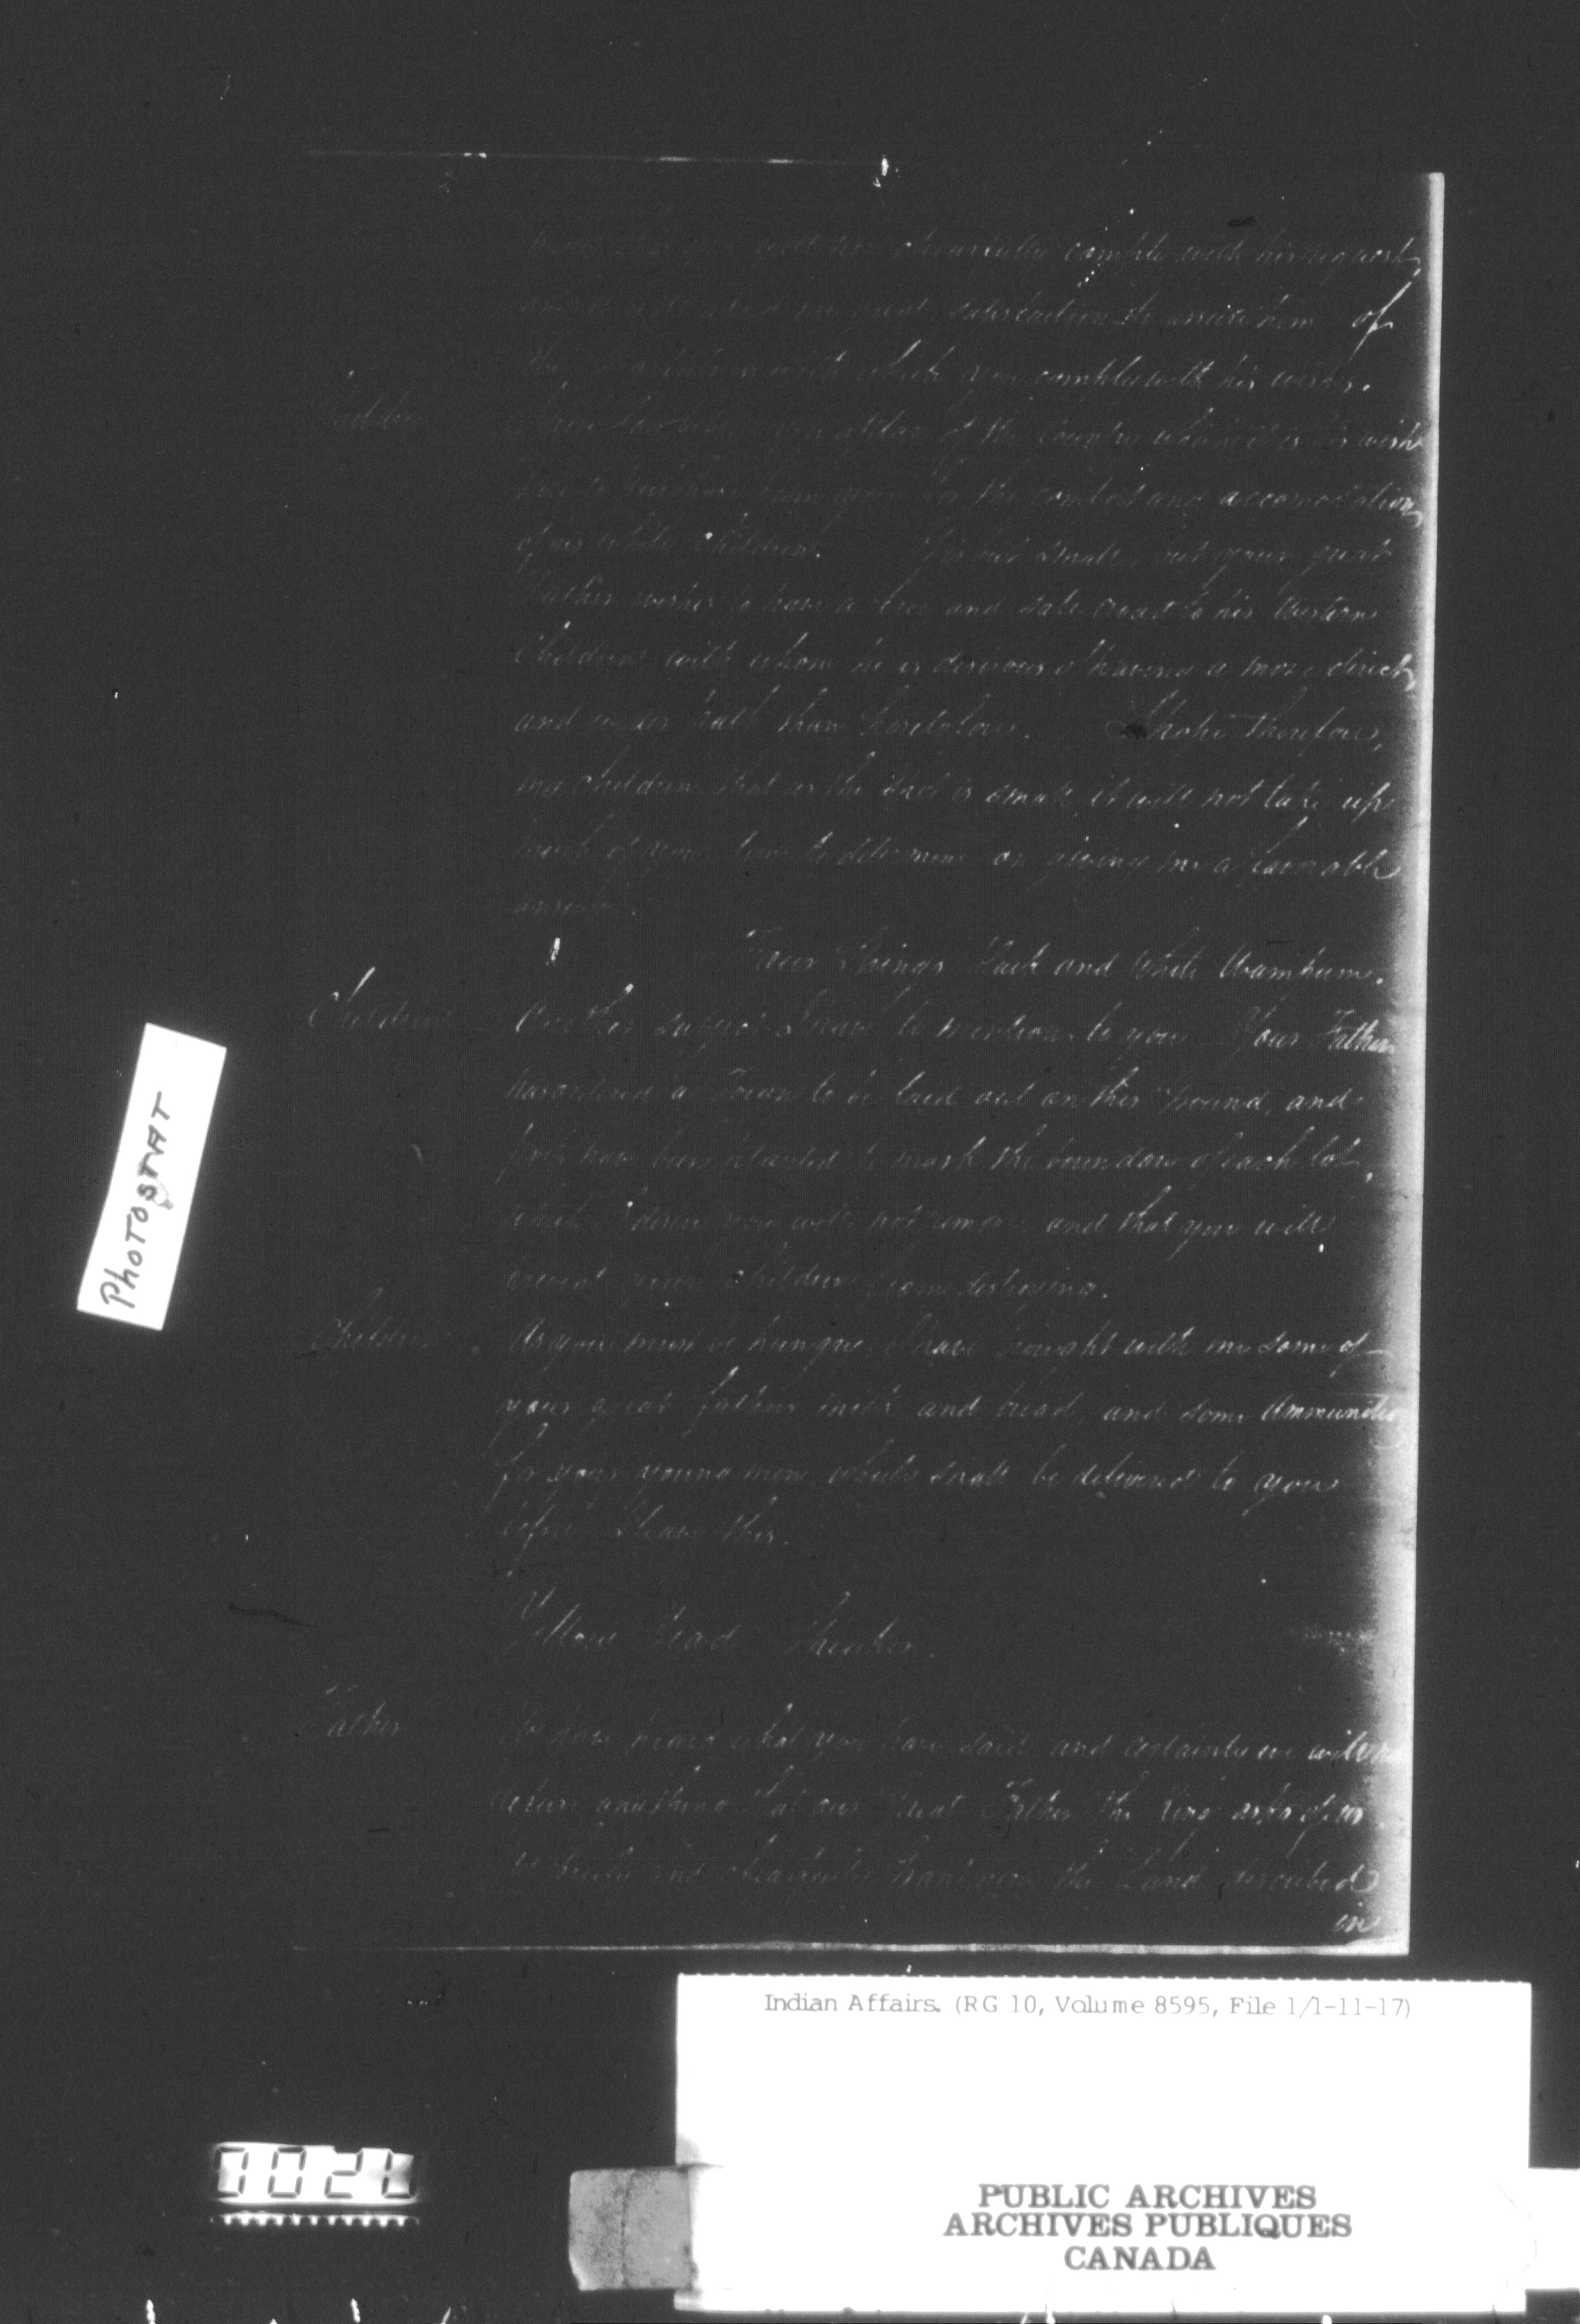 will chearfully comply with his request,
great satisfaction to assure him of
the with which you comply with his wishes.
Children
you a plan of the Country which it is his wish
purchase from you for the comfort and accomodation
of his white Children. It is but small, but your great
Father wishes to have a free and safe road to his Western
Children with whom he is desirous of having a more direct,
and path than heretofore. I hope therefore,
my children that as the spot is small, it will not take up
much of your time to determine on giving me a favorable
answer.
Four Strings Black and White Wampum.
Children
Another subject I have to mention to you. Your Father
has ordered a Town to be laid out on this Ground, and
have been planted to mark the boundary of each lot,
which I desire you will not remove and that you will
prevent your children from destroying.
Children
As you must be hungry I have brought with me some of
your great fathers milk and bread, and some Ammunition
for your young men which shall be delivered to you
before I leave this.
Yellow Head Speaker.
Father
We have heard what you have said and certainly we will not
refuse anything that our Great Father the King asks of us.
We freely and chearfully Grant him the Land described
in
PHOTOSTAT
Indian Affairs. (RG 10, Volume 8595, File 1/1-11-17)
1021
PUBLIC ARCHIVES
ARCHIVES PUBLIQUES
CANADA